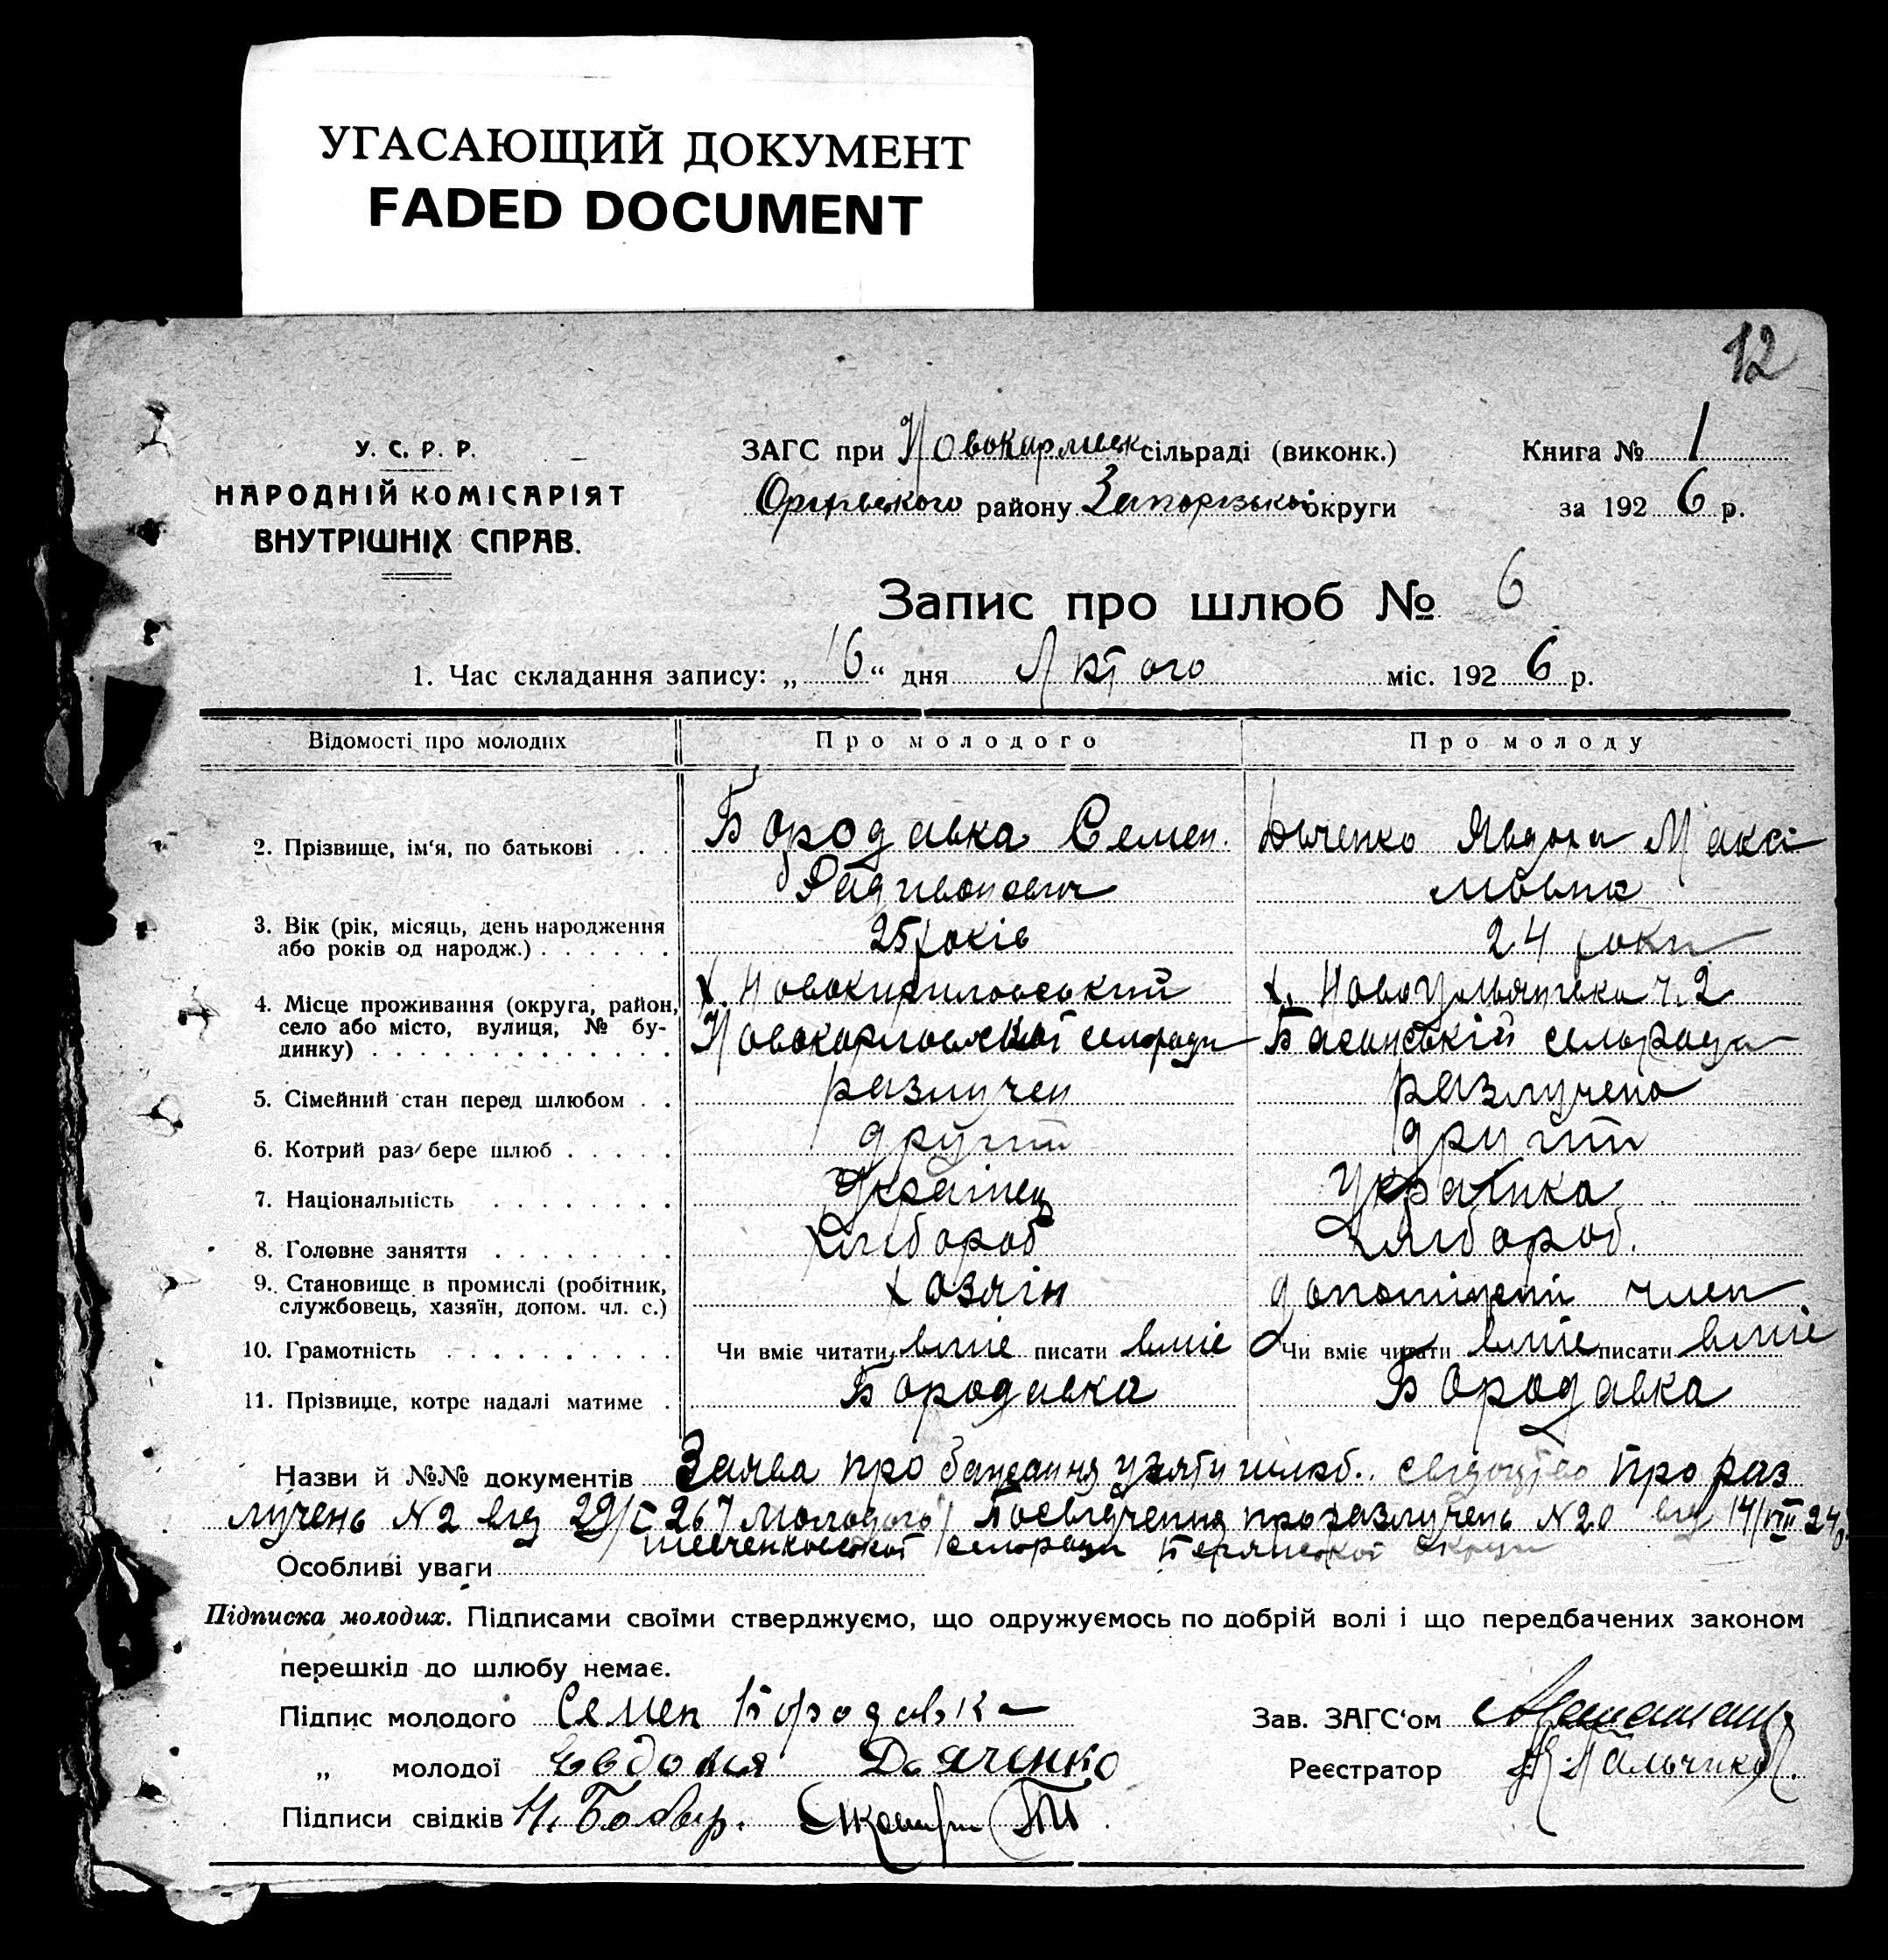 УГАСАЮЩИЙ ДОКУМЕНТ
FADED DOCUMENT
12
У. С. Р. Р.
НАРОДНІЙ КОМІСАРІЯТ
ВНУТРІШНІХ СПРАВ.
ЗАГС при Новокарлівск сільраді (виконк.)
Оріхівського району Запорізької округи
Книга № 1
за 1926 р.
Запис про шлюб № 6
1. Час складання запису: „16“ дня Лютого міс. 1926 р.
Відомості про молодих Про молодого Про молоду
2. Прізвище, ім'я, по батькові . . . Бородавка Семен Явдоха Максі
мовна
3. Вік (рік, місяць, день народження
або років од народж.) . . . . . . 25 років 24 роки
4. Місце проживання (округа, район,
село або місто, вулиця, № бу-
динку) . . . . . . . . . . . . .
х. Новокириловський
Новокарловської сельради
х. Новоульянівка ч. 2
Басанській сельради
5. Сімейний стан перед шлюбом . . разлучен разлучена
6. Котрий раз бере шлюб . . . . . другий другий
7. Національність . . . . . . . . Українец Українка
8. Головне заняття . . . . . . . . Хлібороб Хлібороб.
9. Становище в промислі (робітник,
службовець, хазяїн, допом. чл. с.) хозяїн член
10. Грамотність . . . . . . . . . . Чи вміє читати вміє писати вміє Чи вміє читати вміє писати вміє
11. Прізвище, котре надалі матиме . Бородавка Бородавка
Назви й №№ документів Заява про бажання узяти шлюб.. свідоцтво про раз
лучень N2 від 29/I 26 молодого / Посвідчення про разлучень N20 від 14/VIII 24
Шевченковської сельради округи
Особливі уваги
Підписка молодих. Підписами своїми стверджуємо, що одружуємось по добрій волі і що передбачених законом
перешкід до шлюбу немає.
Підпис молодого Семен Бородавка
Зав. ЗАГС'ом
„ молодої Евдокия Дяченко
Реєстратор Пальчиков
Підписи свідків Н. Бобыр.